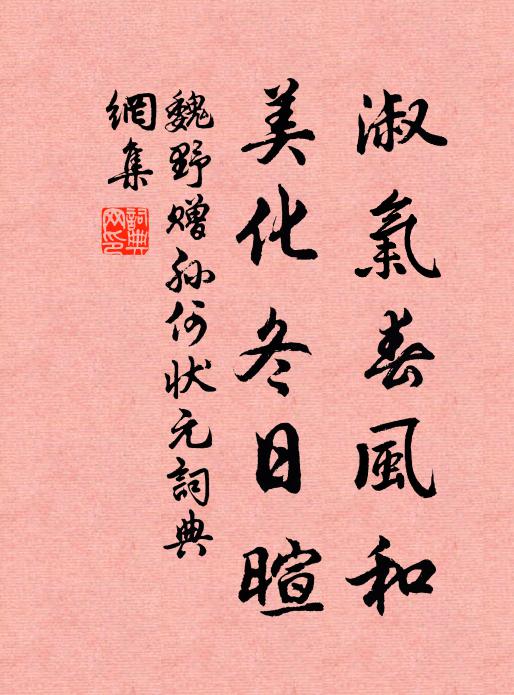 淑氣春風和
美化冬日暄
魏野贈孫何狀元詞典
網集
詞典
网印